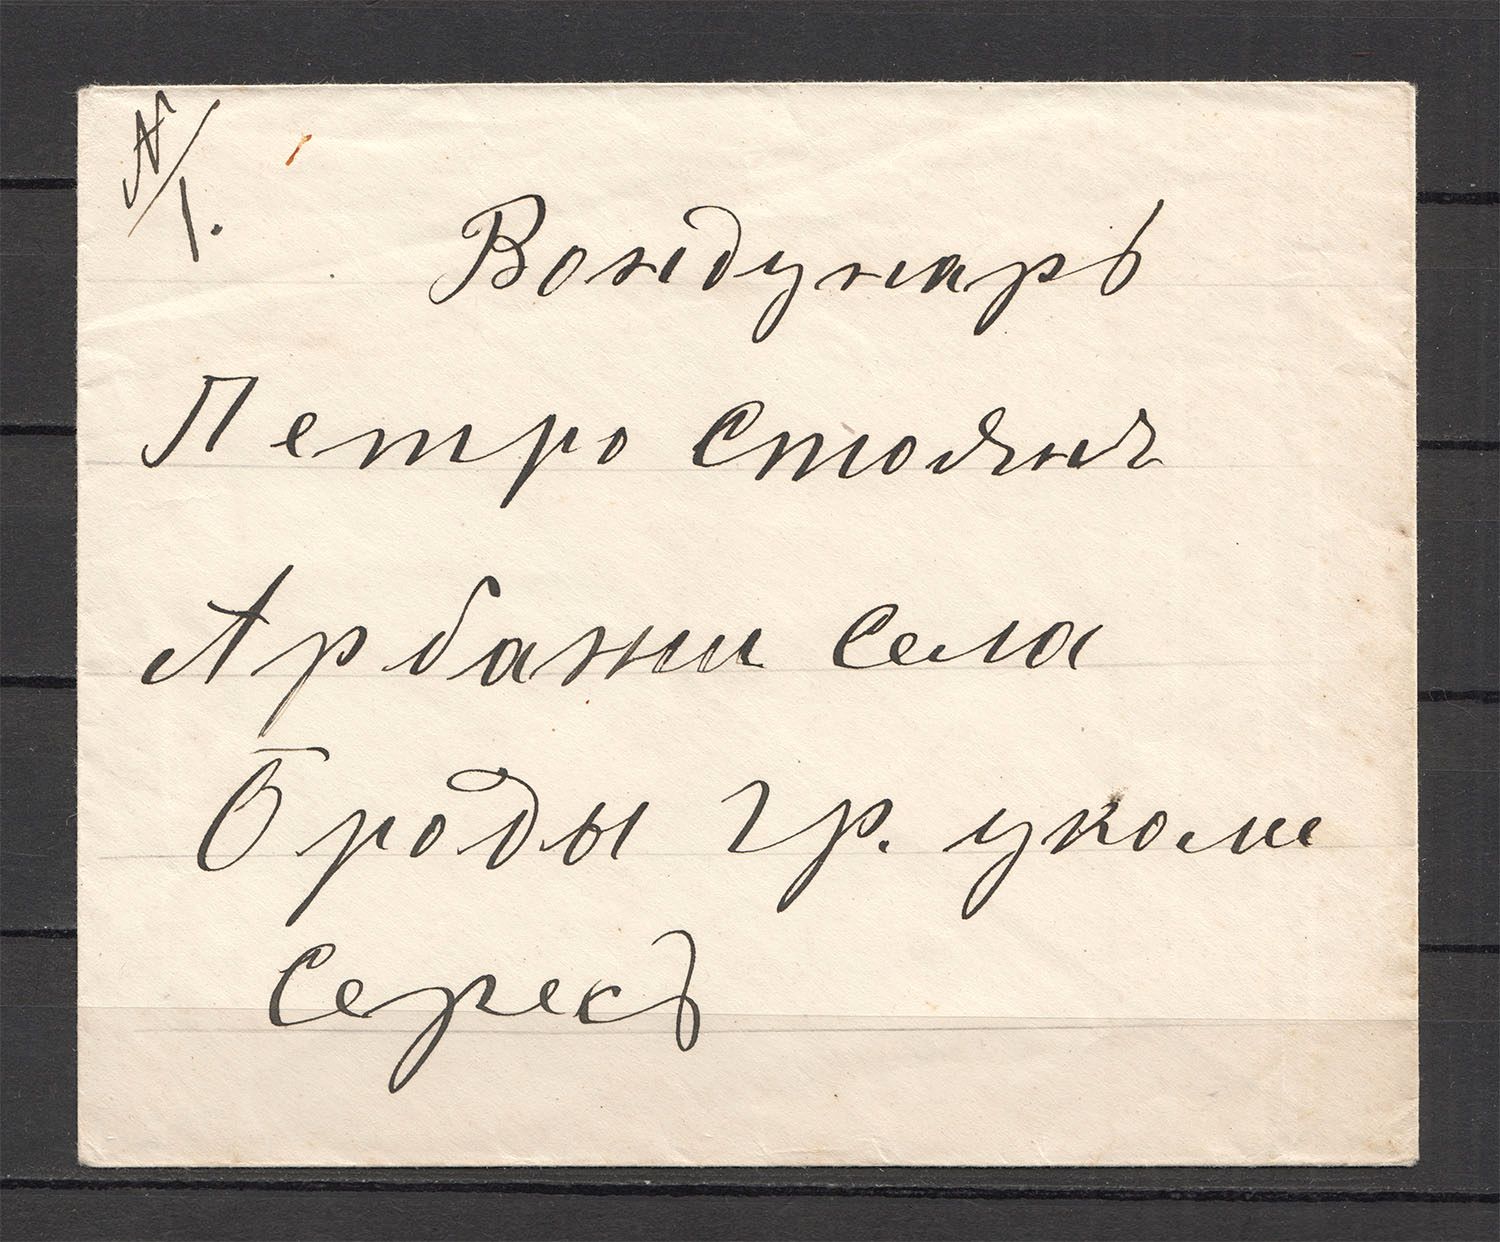 № 1.
Вондунаръ
Петро Стоянъ
Арбажи села
Броды гр. уколе
Сересъ